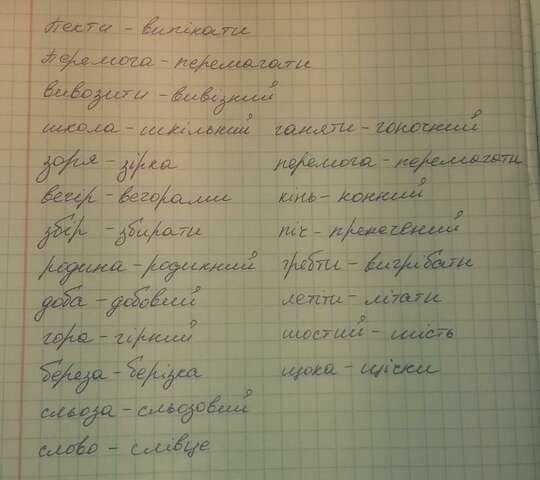 Пекти - випікати
Перемога - перемагати
вивозити - вивізний
школа - шкільний
зоря - зірка
вечір - вечорами
збір - збирати
родина - родинний
доба - добовий
гора - гірний
береза - берізка
сльоза - сльозовий
слово - слівце
ганяти - гоночний
перемога - перемагати
кінь - конний
піч - препечений
гребти - вигрібати
летіти - літати
шостий - шість
щока - щіски